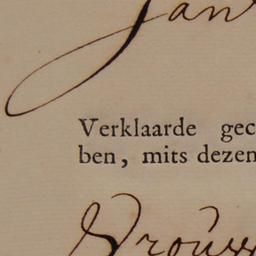 Jan
Verklaarde gec
ben, mits dezen
Vrouw